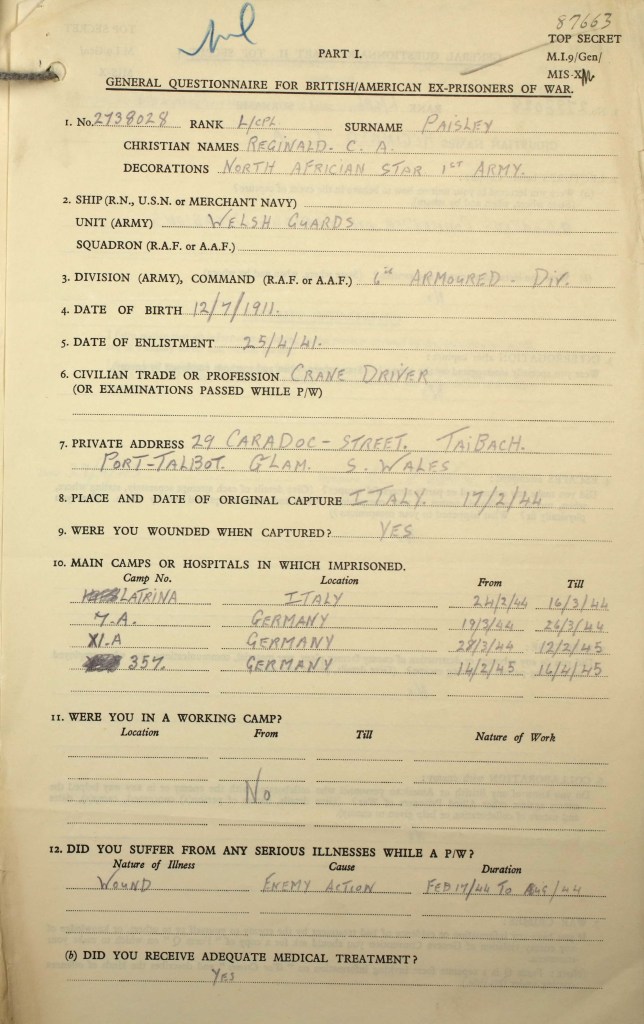 87663
TOP SECRET
PART I.
M.I.9/Gen/
MIS-X
GENERAL QUESTIONNAIRE FOR BRITISH/AMERICAN EX-PRISONERS OF WAR.
1. No. 2738028 RANK L/CPL SURNAME PAISLEY
CHRISTIAN NAMES REGINALD. C. A.
DECORATIONS NORTH AFRICIAN STAR 1ST ARMY.
2. SHIP (R.N., U.S.N. or MERCHANT NAVY)
UNIT (ARMY) WELSH GUARDS
SQUADRON (R.A.F. or A.A.F.)
3. DIVISION (ARMY), COMMAND (R.A.F. or A.A.F.) 6th ARMOURED - DIV.
4. DATE OF BIRTH 12/7/1911.
5. DATE OF ENLISTMENT 25/4/41.
6. CIVILIAN TRADE OR PROFESSION CRANE DRIVER
(OR EXAMINATIONS PASSED WHILE P/W)
7. PRIVATE ADDRESS 29 CARADOC - STREET. TAIBACH.
PORT-TALBOT. GLAM. S. WALES
8. PLACE AND DATE OF ORIGINAL CAPTURE ITALY. 17/2/44
9. WERE YOU WOUNDED WHEN CAPTURED? YES
10. MAIN CAMPS OR HOSPITALS IN WHICH IMPRISONED.
Camp No. Location From Till
LATRINA ITALY 24/2/44 16/3/44
7.A. GERMANY 19/3/44 26/3/44
XI.A GERMANY 28/3/44 12/2/45
357. GERMANY 14/2/45 16/4/45
11. WERE YOU IN A WORKING CAMP?
Location From Till Nature of Work
No
12. DID YOU SUFFER FROM ANY SERIOUS ILLNESSES WHILE A P/W?
Nature of Illness Cause Duration
WOUND ENEMY ACTION FEB 17/44 TO AUG/44
(b) DID YOU RECEIVE ADEQUATE MEDICAL TREATMENT?
YES